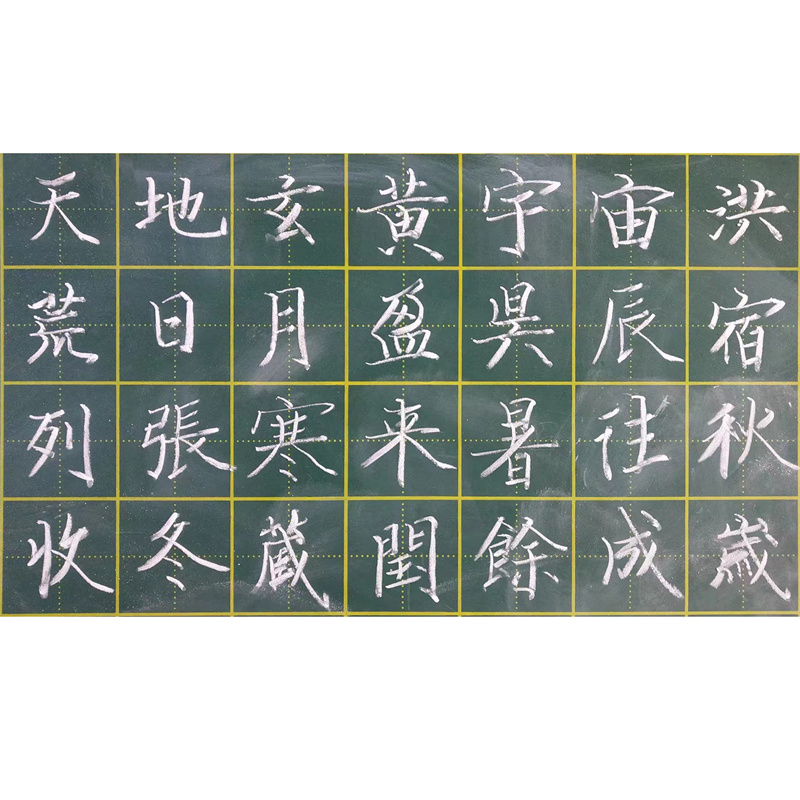 天地玄黄宇宙洪
荒日月盈昃辰宿
列張寒来暑往秋
收冬蔵閏餘成歲